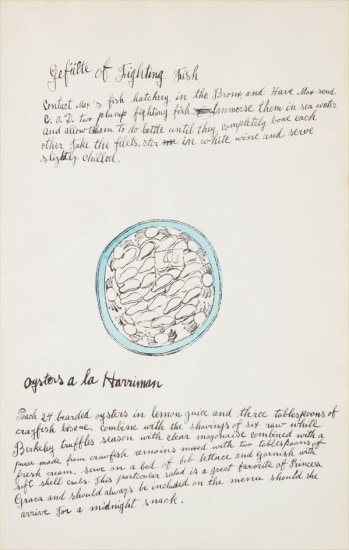 Gefülte of Fighting Fish
Contact Max's fish hatchery in the Bronx and Have Max send
C.O.D. two plump fighting fish. Immerse them in sea water
and allow them to do battle until they completely bone each
other. Take the filets, stew in white wine and serve
slightly chilled.
Oysters a la Harriman
Poach 24 bearded oysters in lemon juice and three tablespoons of
crayfish bosane. Combine with the shavings of six raw white
Berkeley truffles season with clear mayonaise combined with a
puree made from crayfish remains mixed with two tablespoons of
fresh cream. serve on a bed of bib lettace and garnish with
soft shell crabs. This particular salad is a great favorite of Princess
Graca and should always be included on the menu should she
arrive for a midnight snack.